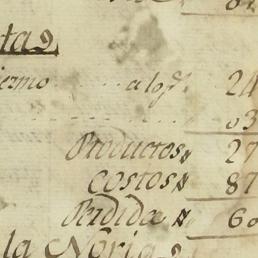 ta
iermo a los 24
03
Productos 27
Costos 87
Perdida 60
la Noria